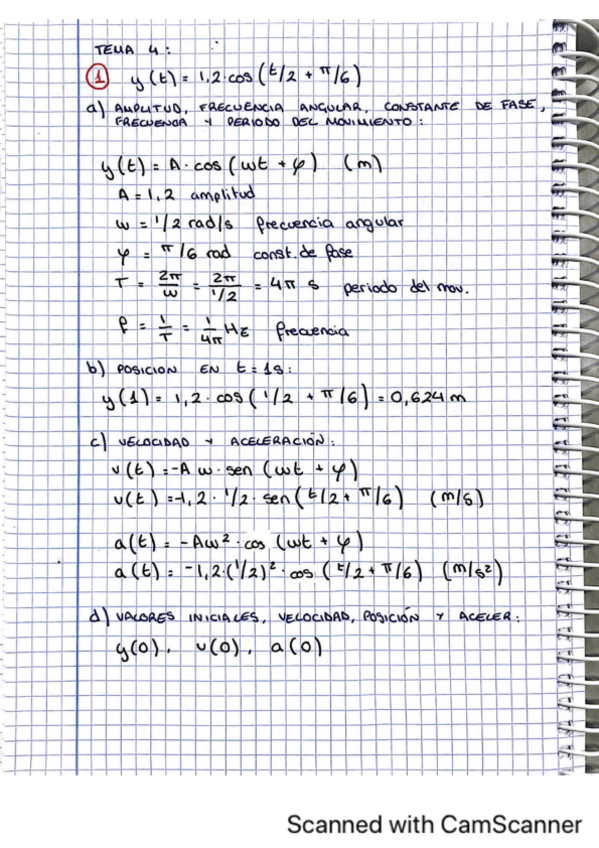 TEMA 4:
① y(t) = 1,2·cos(t/2 + π/6)
a) AMPLITUD, FRECUENCIA ANGULAR, CONSTANTE DE FASE,
FRECUENCIA Y PERIODO DEL MOVIMIENTO:
y(t) = A·cos(ωt + φ) (m)
A = 1,2 amplitud
ω = 1/2 rad/s frecuencia angular
φ = π/6 rad const. de fase
T = 2π/ω = 2π/1/2 = 4π s periodo del mov.
f = 1/T = 1/4π Hz frecuencia
b) POSICION EN t = 1s:
y(1) = 1,2·cos(1/2 + π/6) = 0,624 m
c) VELOCIDAD Y ACELERACIÓN:
v(t) = -A ω·sen(ωt + φ)
v(t) = -1,2·1/2·sen(t/2 + π/6) (m/s)
a(t) = -Aω²·cos(ωt + φ)
a(t) = -1,2·(1/2)²·cos(t/2 + π/6) (m/s²)
d) VALORES INICIALES, VELOCIDAD, POSICIÓN Y ACELER:
y(0), v(0), a(0)
Scanned with CamScanner